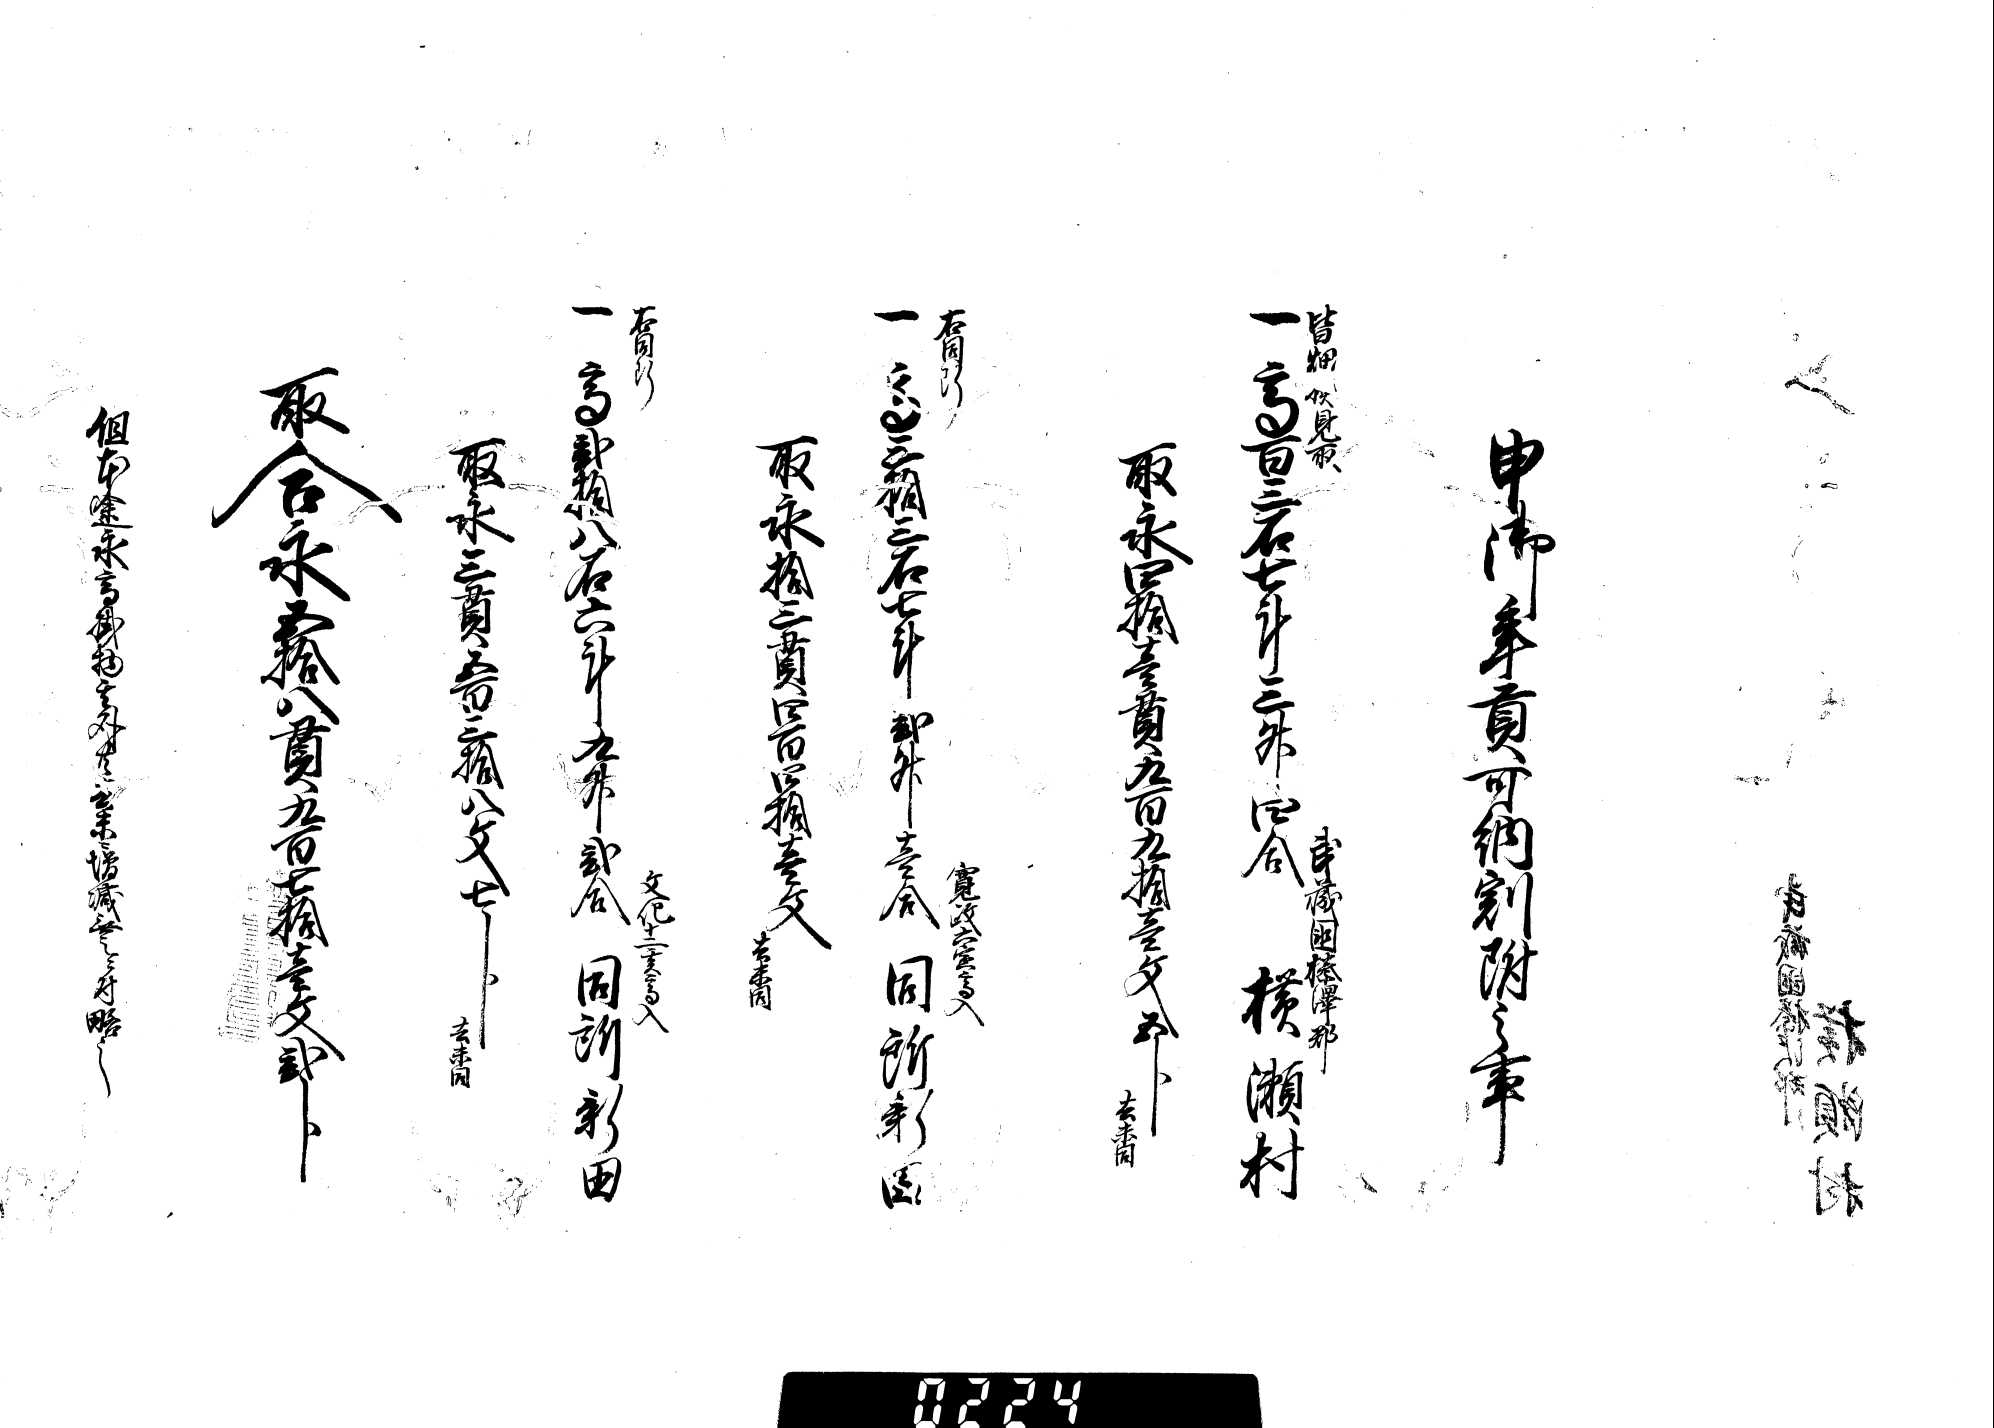 申御年貢可納割附之事
皆畑 伏見取
武蔵国榛澤郡
一高百三石七斗三升四合 横瀬村
取永四拾壱貫九百九拾壱文五分
去未同
右同断
寛政六寅高入
一高三拾三石七斗弐升壱合 同所新田
取永拾三貫四百四拾壱文
去未同
右同断
文化十二亥高入
一高弐拾八石六斗九升弐合 同所新田
取永三貫五百三拾八文七分
去未同
取合永五拾八貫九百七拾壱文弐分
但本途永高掛物其外共去未増減無之ニ付略之
武蔵国榛澤郡
横瀬村
0224